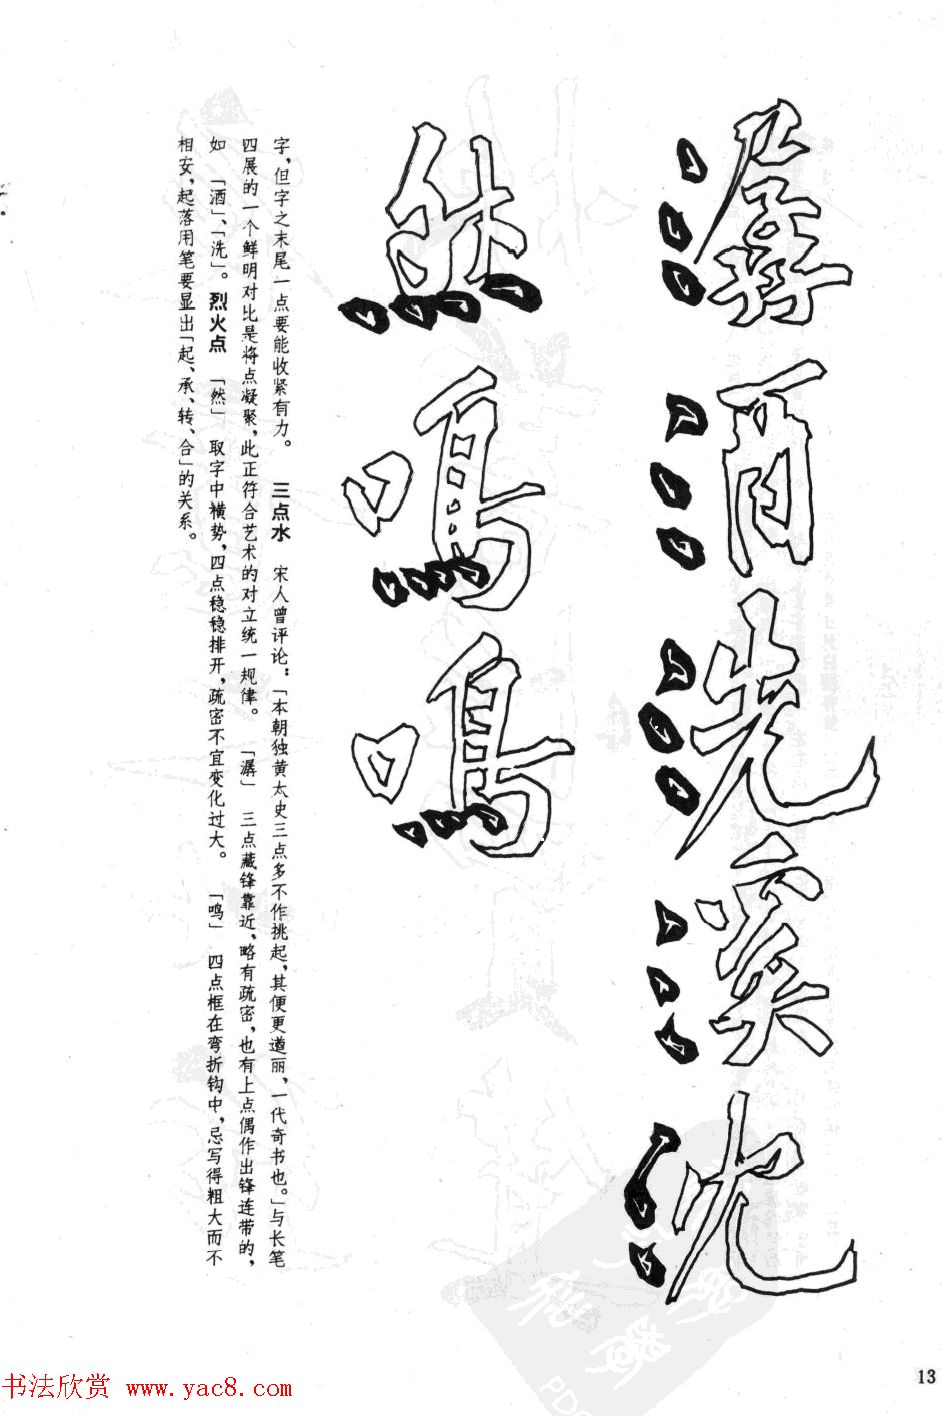 潺酒洗溪沈
然鸣鸣
字，但字之末尾一点要能收紧有力。 三点水 宋人曾评论：「本朝独黄太史三点多不作挑起，其便更遒丽，一代奇书也。」与长笔
四展的一个鲜明对比是将点凝聚，此正符合艺术的对立统一规律。 「潺」 三点藏锋靠近，略有疏密，也有上点偶作出锋连带的，
如 「酒」、「洗」。烈火点 「然」 取字中横势，四点稳稳排开，疏密不宜变化过大。 「鸣」 四点框在弯折钩中，忌写得粗大而不
相安，起落用笔要显出「起、承、转、合」的关系。
13
书法欣赏 www.yac8.com